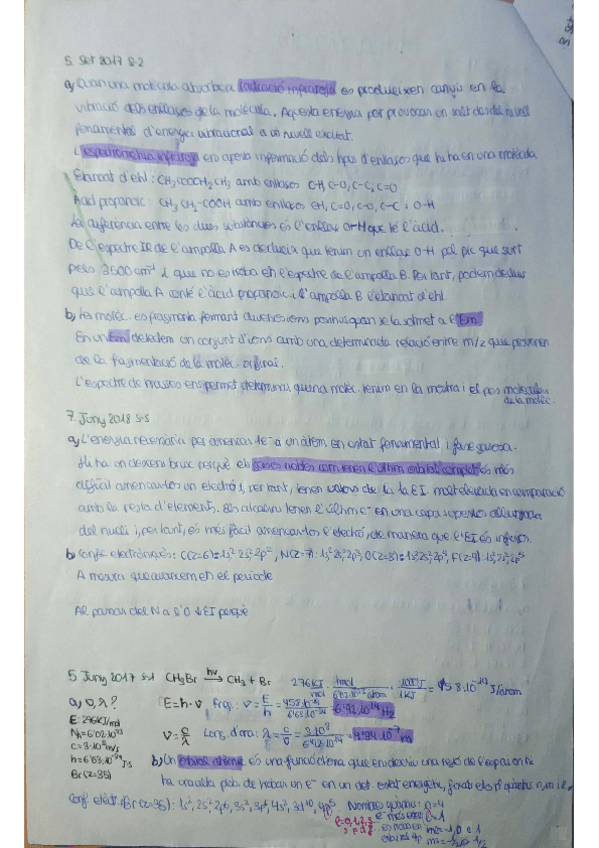 5. Set 2017 S-2
a) Quan una molècula absorbeix radiació infraroja es produeixen canvis en la
vibració dels enllaços de la molècula. Aquesta energia pot provocar un salt des del nivell
fonamental d'energia vibracional a un nivell excitat.
L'espectrometria infraroja ens aporta informació dels tipus d'enllaços que hi ha en una molècula
Etanoat d'etil: CH3COOCH2CH3 amb enllaços C-H, C-O, C-C i C=O
Àcid propanoic: CH3CH2-COOH amb enllaços CH, C=O, C-O, C-C i O-H
La diferència entre les dues substàncies és l'enllaç O-H que té l'àcid.
De l'espectre IR de l'ampolla A es dedueix que tenim un enllaç O-H pel pic que surt
pels 3500 cm-1 i que no es troba en l'espectre de l'ampolla B. Per tant, podem deduir
que l'ampolla A conté l'àcid propanoic i l'ampolla B l'etanoat d'etil.
b) Les molèc. es fragmenten formant diversos ions positius quan se la sotmet a l'Em
En un Em detectem un conjunt d'ions amb una determinada relació entre m/z que provenen
de la fragmentació de la molèc. original.
L'espectre de masses ens permet determinar quina molèc. tenim en la mostra i el pes molecular
de la molèc.
7. Juny 2018 S-5
a) L'energia necessària per arrencar 1 e- a un àtom en estat fonamental i fase gasosa.
Hi ha un descens brusc perquè els gasos nobles com tenen l'últim orbital complet és més
difícil arrencar-los un electró i, per tant, tenen valors de la 1a EI molt elevada en comparació
amb la resta d'elements. Els alcalins tenen l'últim e- en una capa superior allunyada
del nucli i, per tant, és més fàcil arrencar-los l'electró, de manera que l'EI és inferior.
b) Config. electròniques: C(z=6): 1s2 2s2 2p2, N(z=7): 1s2 2s2 2p3, O(z=8): 1s2 2s2 2p4, F(z=9): 1s2 2s2 2p5
A mesura que avancem en el període
Al passar del N a l'O ↓EI perquè
5 Juny 2017 S-1 CH3Br hν→ CH3 + Br 276 KJ/mol · 1mol/6'02·10^23 àtom · 1000J/1KJ = 4'58·10^-19 J/àtom
a) ν, λ? E=h·ν Freq.: ν = E/h = 4'58·10^-19/6'63·10^-34 = 6'92·10^14 Hz
E: 276KJ/mol
NA=6'02·10^23
c=3·10^8 m/s ν=c/λ Long. d'ona: λ = c/ν = 3·10^8/6'92·10^14 = 4'34·10^-7 m
h=6'63·10^-34 Js
Br (z=35) b) Un orbital atòmic és una funció d'ona que en descriu una regió de l'espai on hi
ha una alta prob. de trobar un e- en un det. estat energètic,
Conf. elèct.: Br (z=35): 1s2, 2s2 2p6, 3s2, 3p6, 4s2, 3d10, 4p5 Nombres quàntics: n=4
l=0,1,2,3 l=1
s p d f m=-1,0 o 1